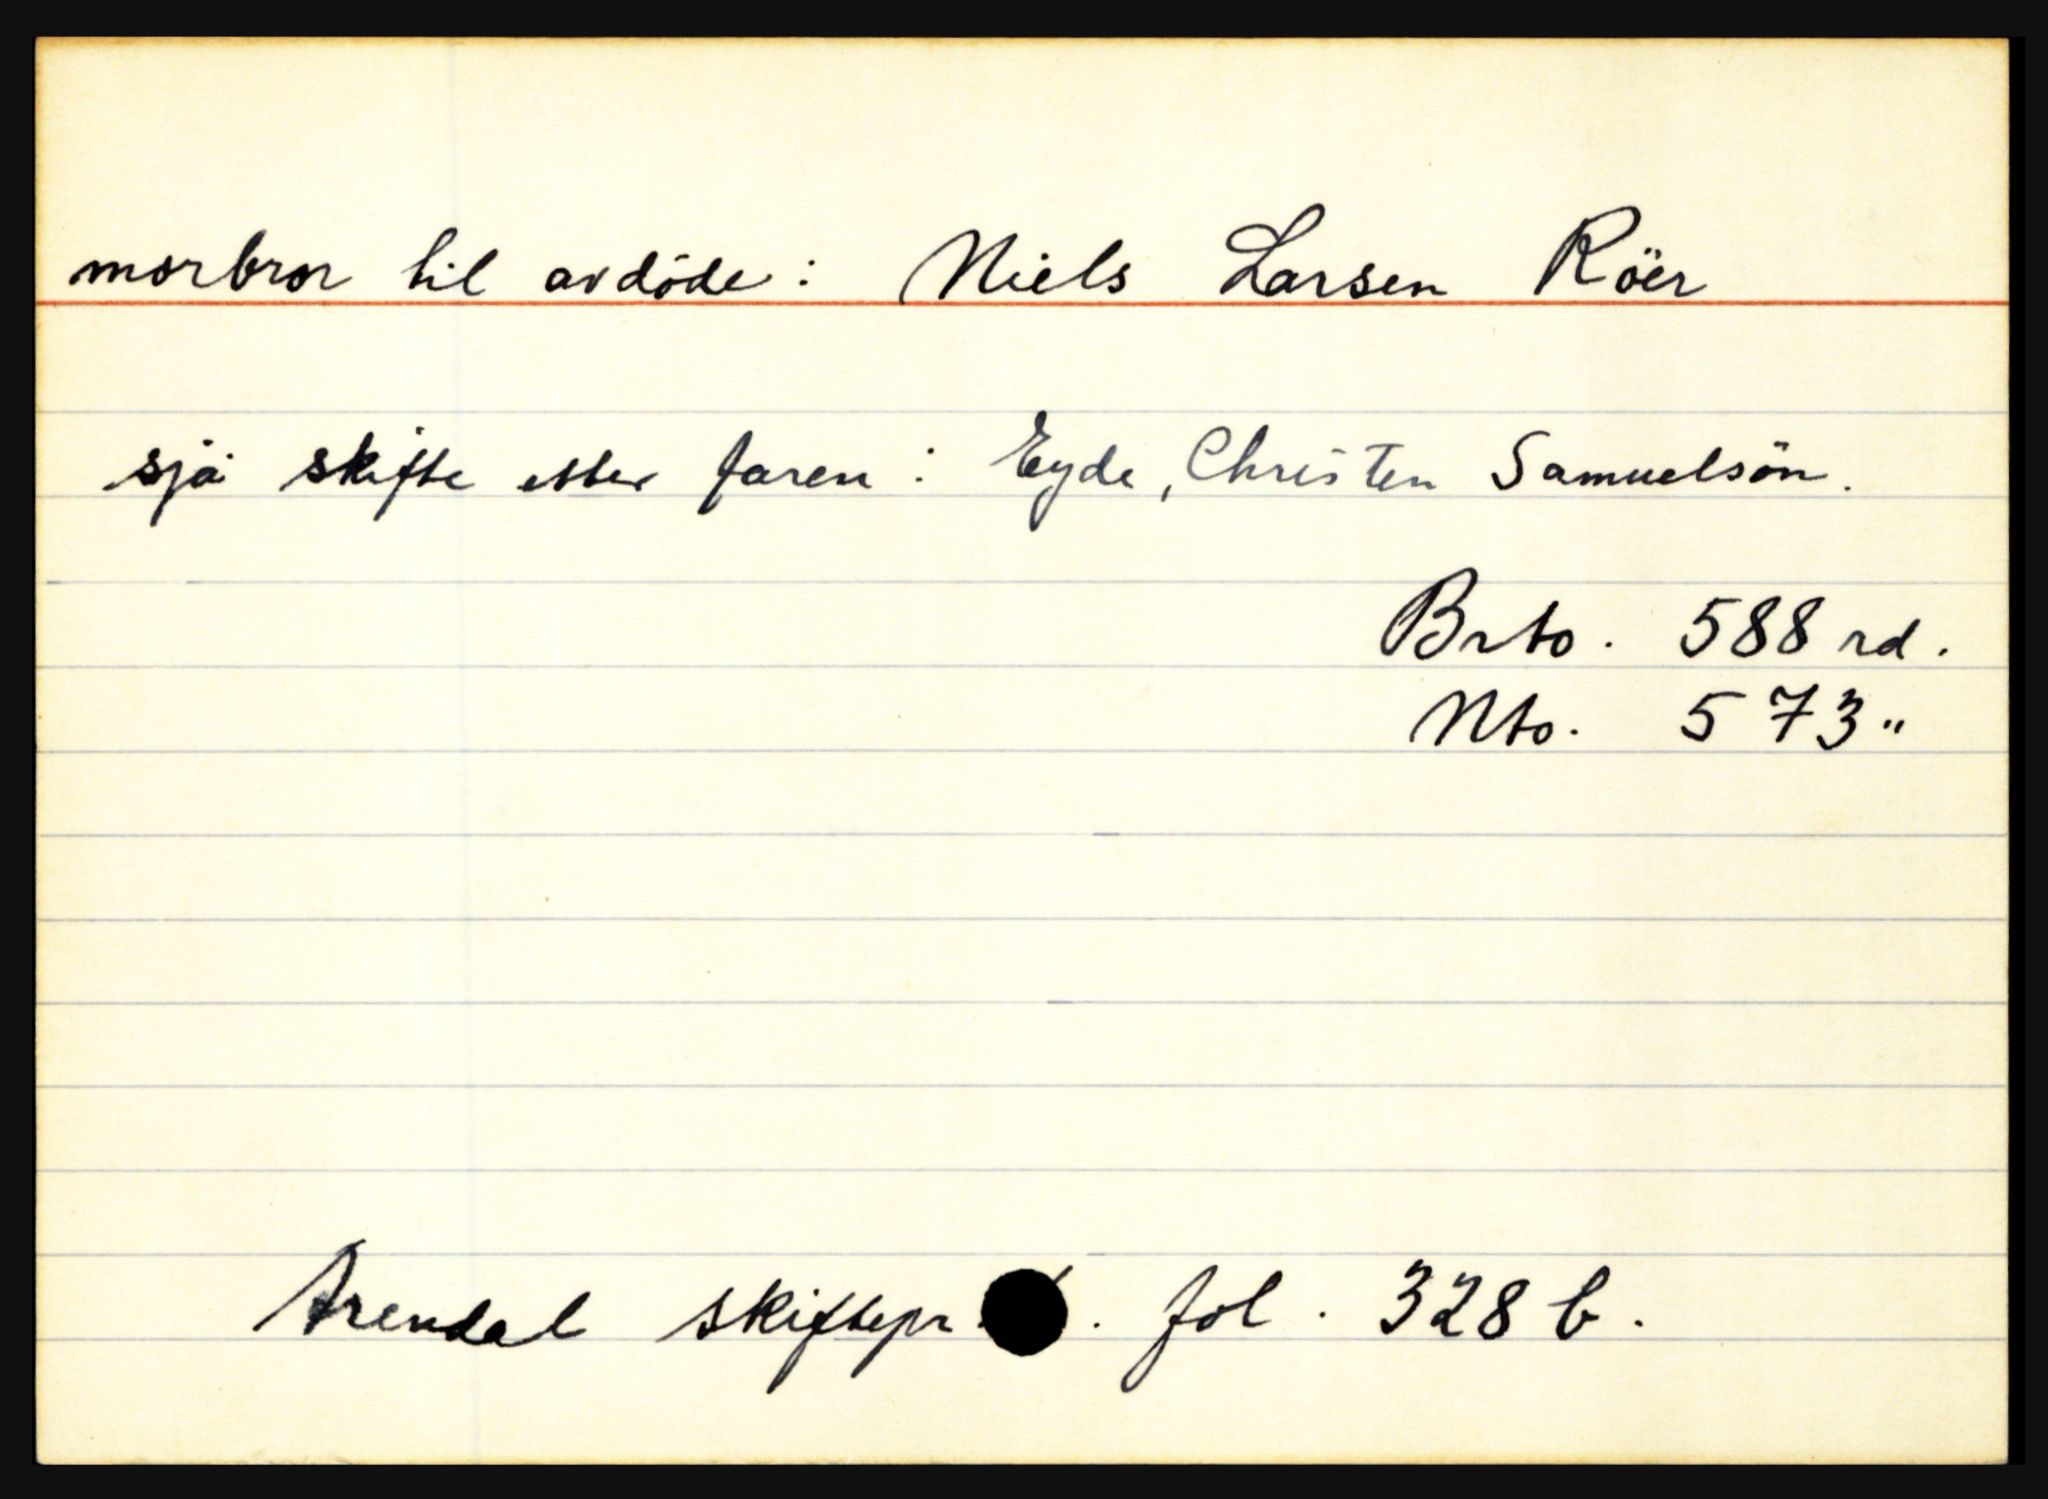 morbror til avdöde: Niels Larsen Röer
sjå skifte etter faren: Eyde, Christen Samuelsön.
Brto. 588 rd.
Nto. 573 "
Arendal skiftepr. . fol. 328 b.